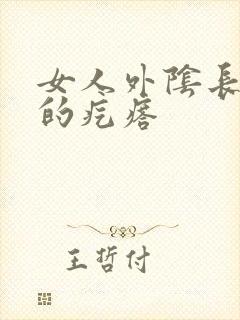 女人外陰長
的疙瘩
王哲付